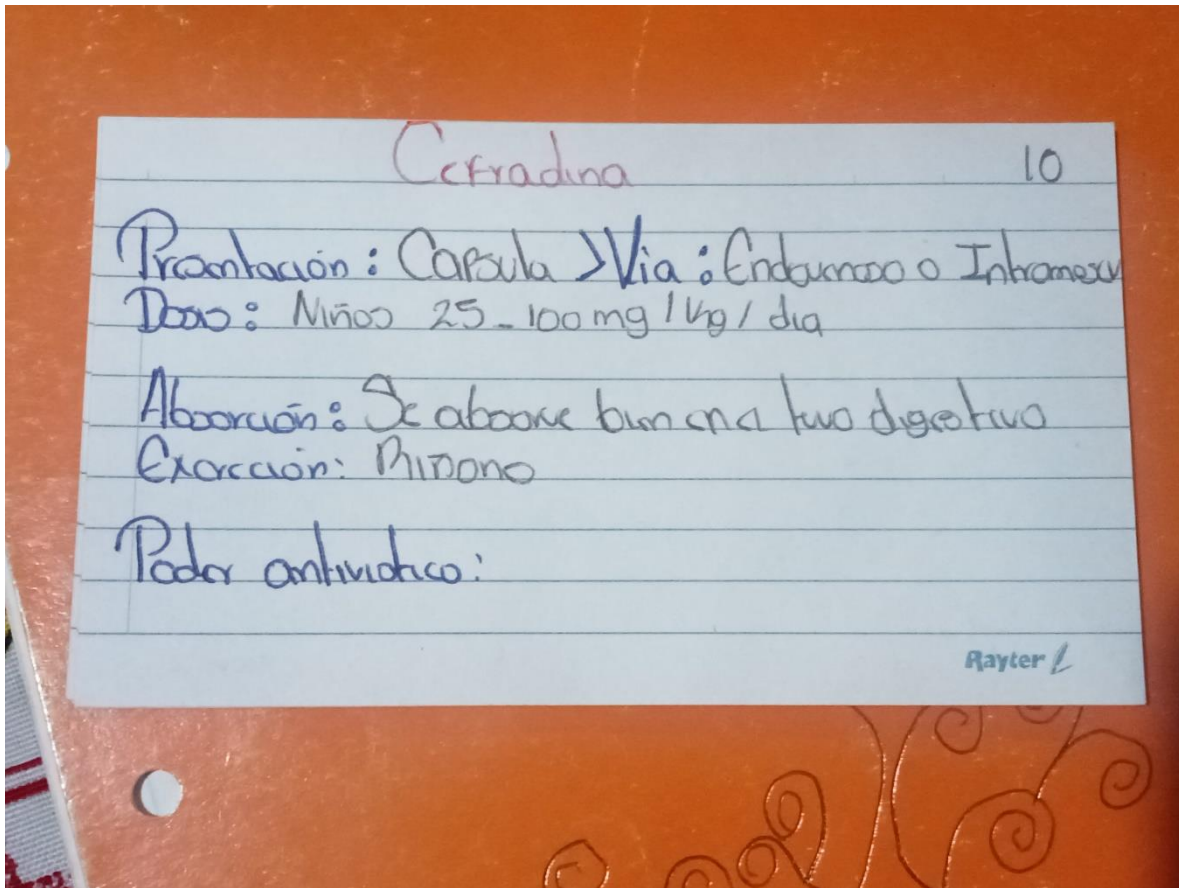 Cefradina 10
Presentación: Capsula > Via: Endovenoso o Intramuscu
Dosis: Niños 25-100 mg / Kg / dia
Absorción: Se absorve bien en el tuvo digestivo
Excreción: Riñones
Poder antiviotico:
Rayter